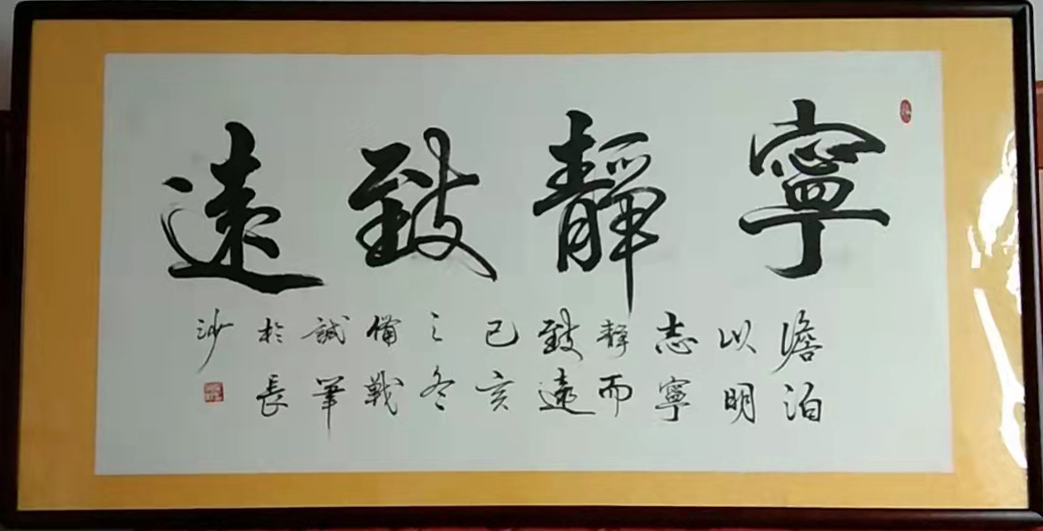 寧靜致遠
澹泊
以明
志寧
靜而
致遠
己亥
之冬
備戰
誠筆
於長
沙